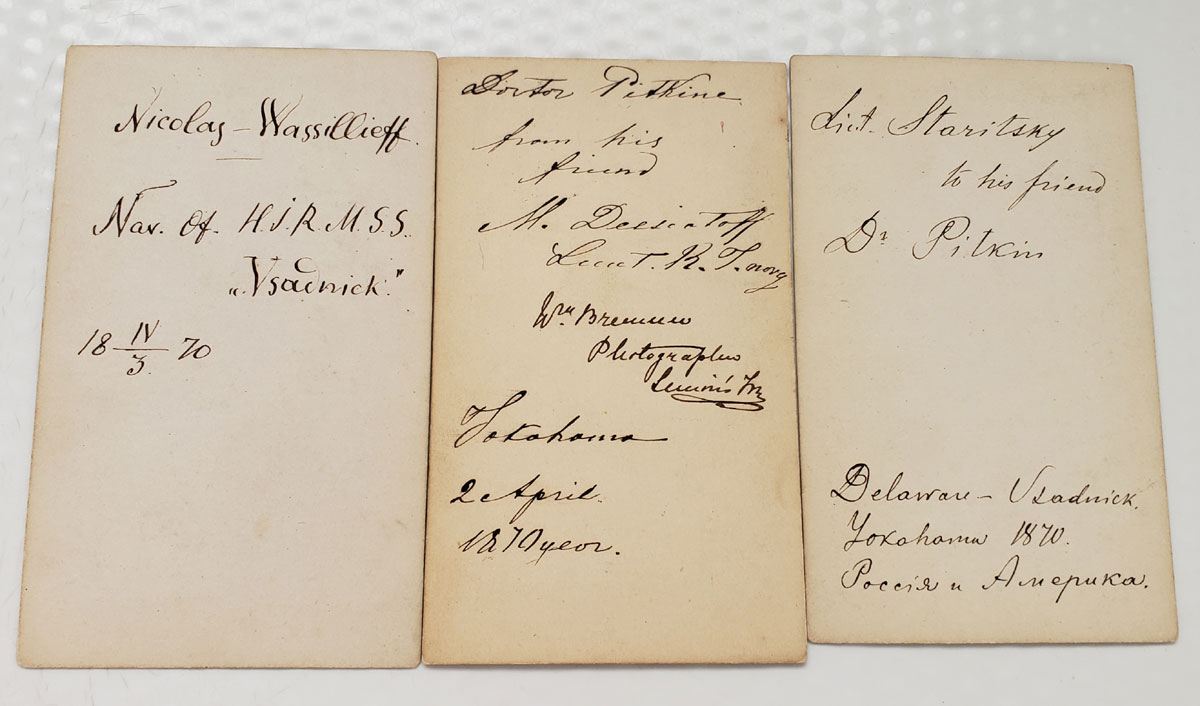 Nicolas – Wassillieff.
Nav. Of. H.I.R.M.S.S.
„Vsadnick."
18 IV/3. 70
Doctor Pitkine
from his
friend
M. Dessiatoff
Lieut. R. I. navy
Wm
Photographer
Yokohama
2 April.
1870 year.
Lieut. Staritsky
to his friend
Dr Pitkin
Delaware – Vsadnick.
Yokohama 1870.
Россія и Америка.